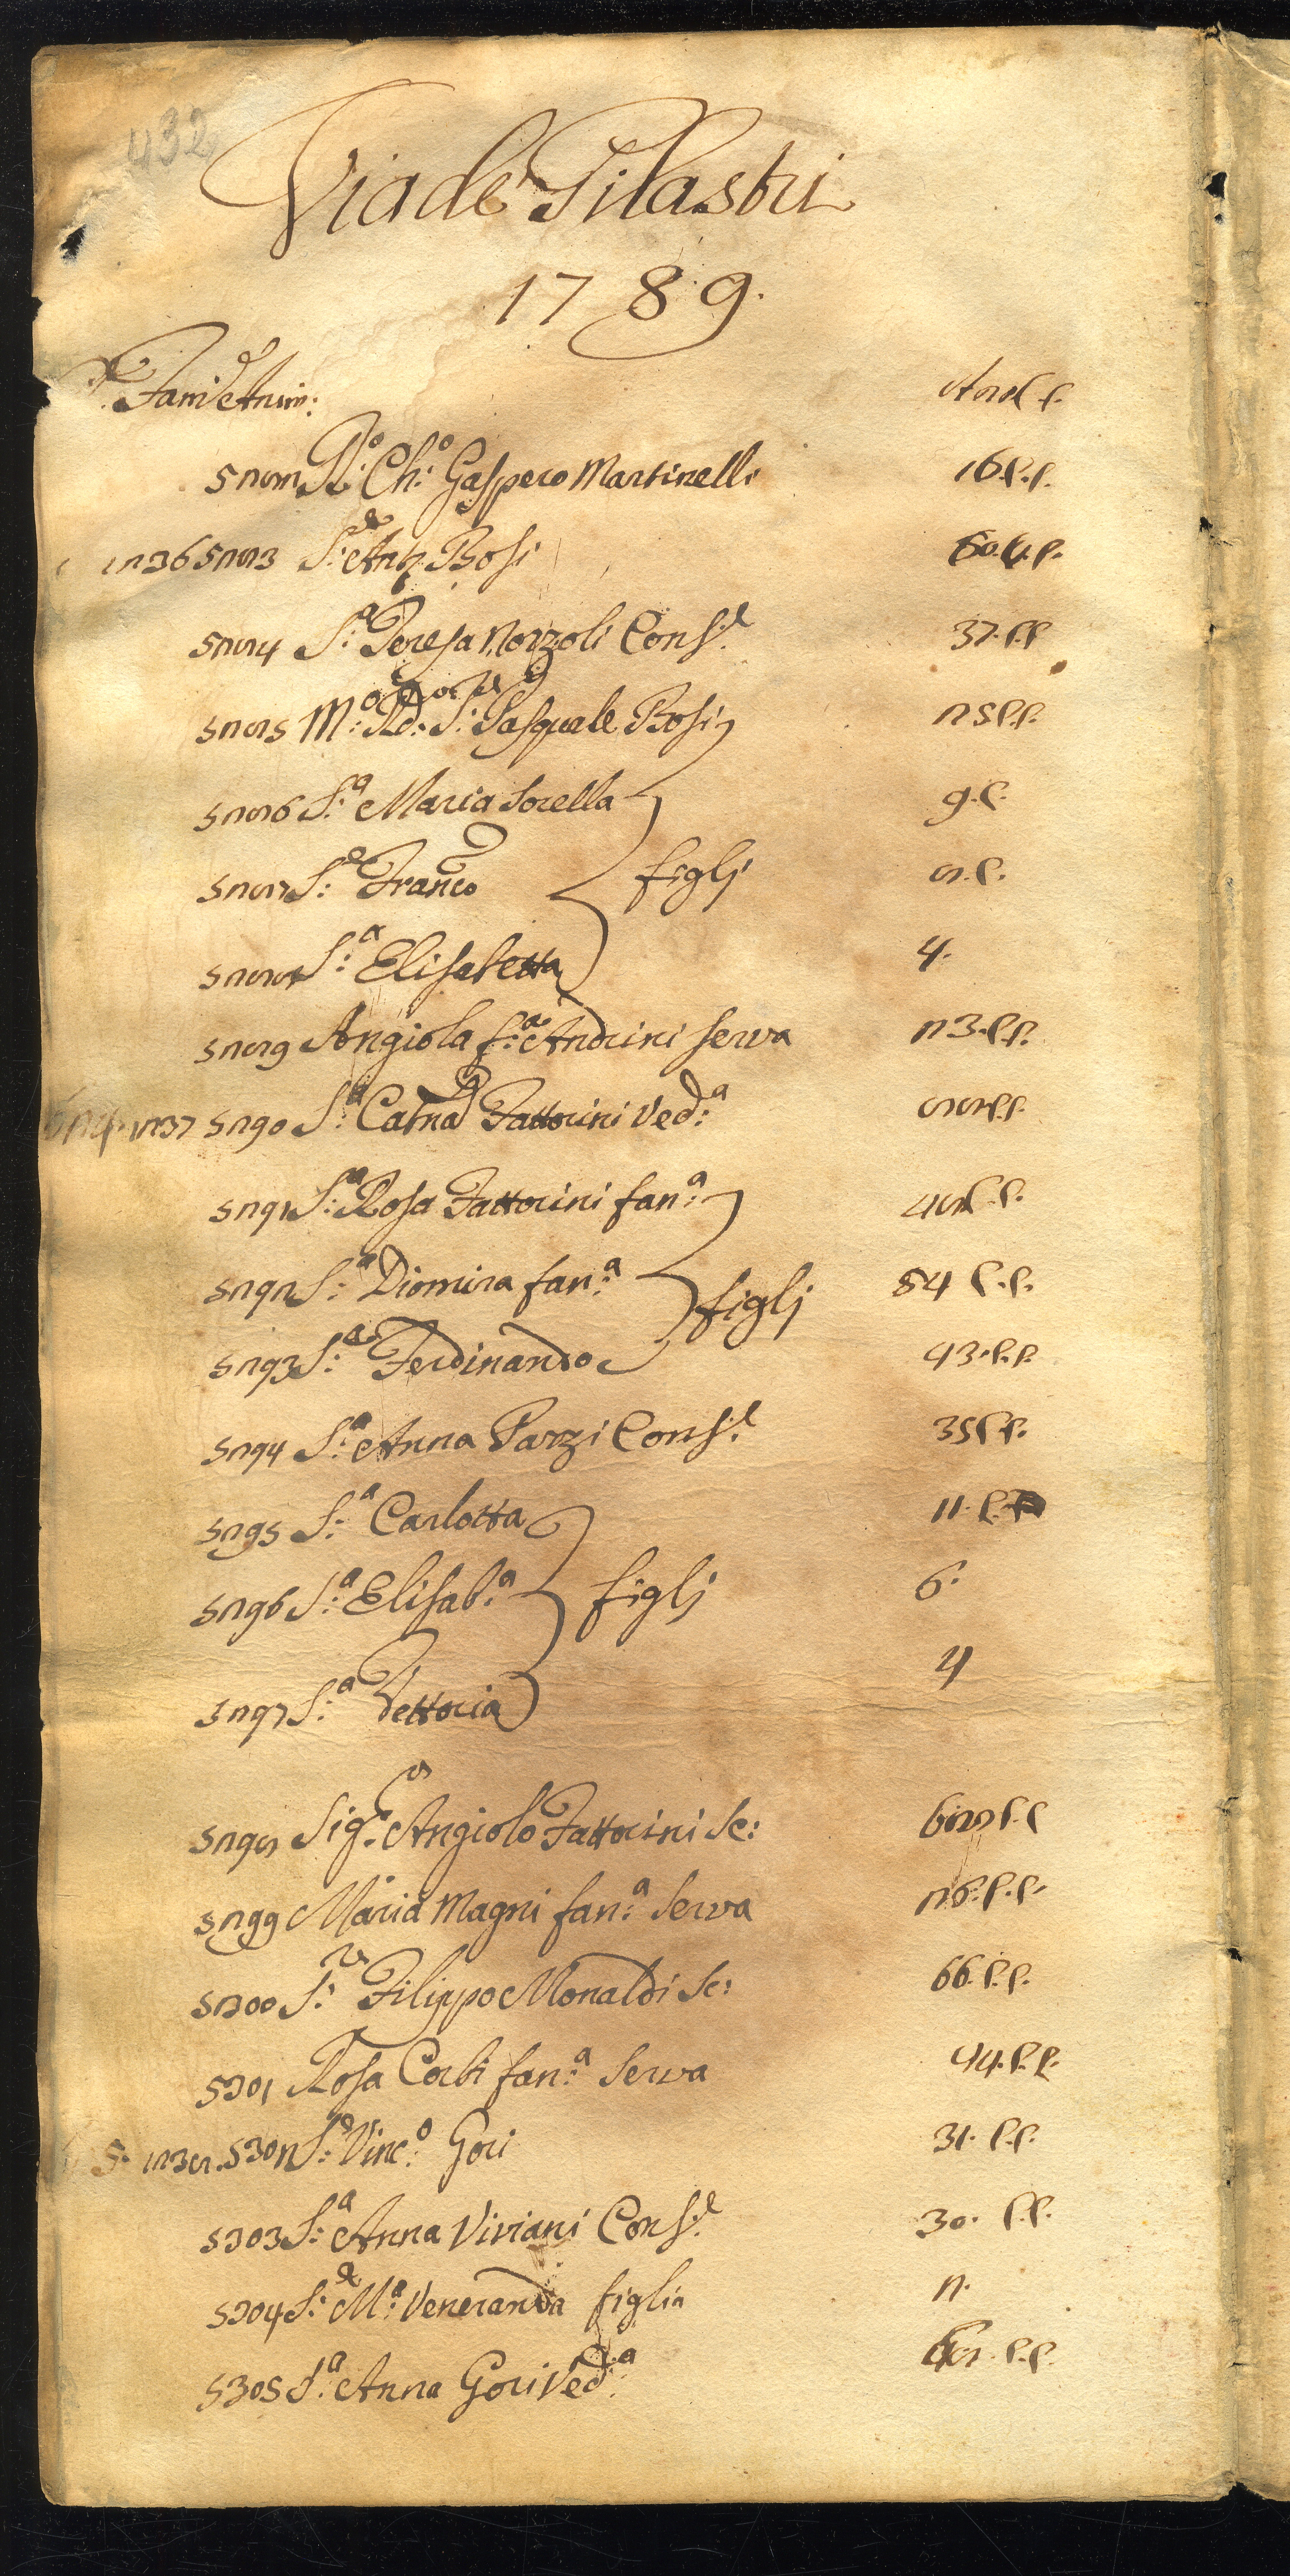 432
Via de Pilastri
1789.
Fam: Anim:
5282 R:o Ch:o Gaspero Martinelli 16. C. C.
1236 5283 S:e Ant: Bosi 60. C. C.
5284 S:a Teresa Nozzoli Cons:e 37. C. C.
5285 M:o Rd:o S:r Pasquale Bosi 25 C. C.
5286 S:a Maria Sorella 9. C.
5287 S:e Franco figlj 8. C.
5288 S:a Elisabetta 4.
5289 Angiola f:a Andrini serva 23. C. C.
1237 5290 S:a Catna Fattorini Ved:a C. C.
5291 S:a Rosa Fattorini fan:a 48 C. C.
5292 S:a Diomira fan:a figlj 54 C. C.
5293 S:e Ferdinando 43. C. C.
5294 S:a Anna Parzi Cons:e 35 C. C.
5295 S:a Carlotta 11. C.
5296 S:a Elisab:a figlj 6.
5297 S:a Vettoria 4
5298 Sig:r Angiolo Fattorini Se: C. C.
5299 Maria Magni fan:a serva 26. C. C.
5300 S:r Filippo Monaldi Se: 66. C. C.
5301 Rosa Corbi fan:a Serva 44. C. C.
5. 1238. 5302 S:e Vinc:o Gori 31. C. C.
5303 S:a Anna Viviani Cons:e 30. C. C.
5304 S:a M:a Veneranda figlia 2.
5305 S:a Anna Gori Ved:a C. C.